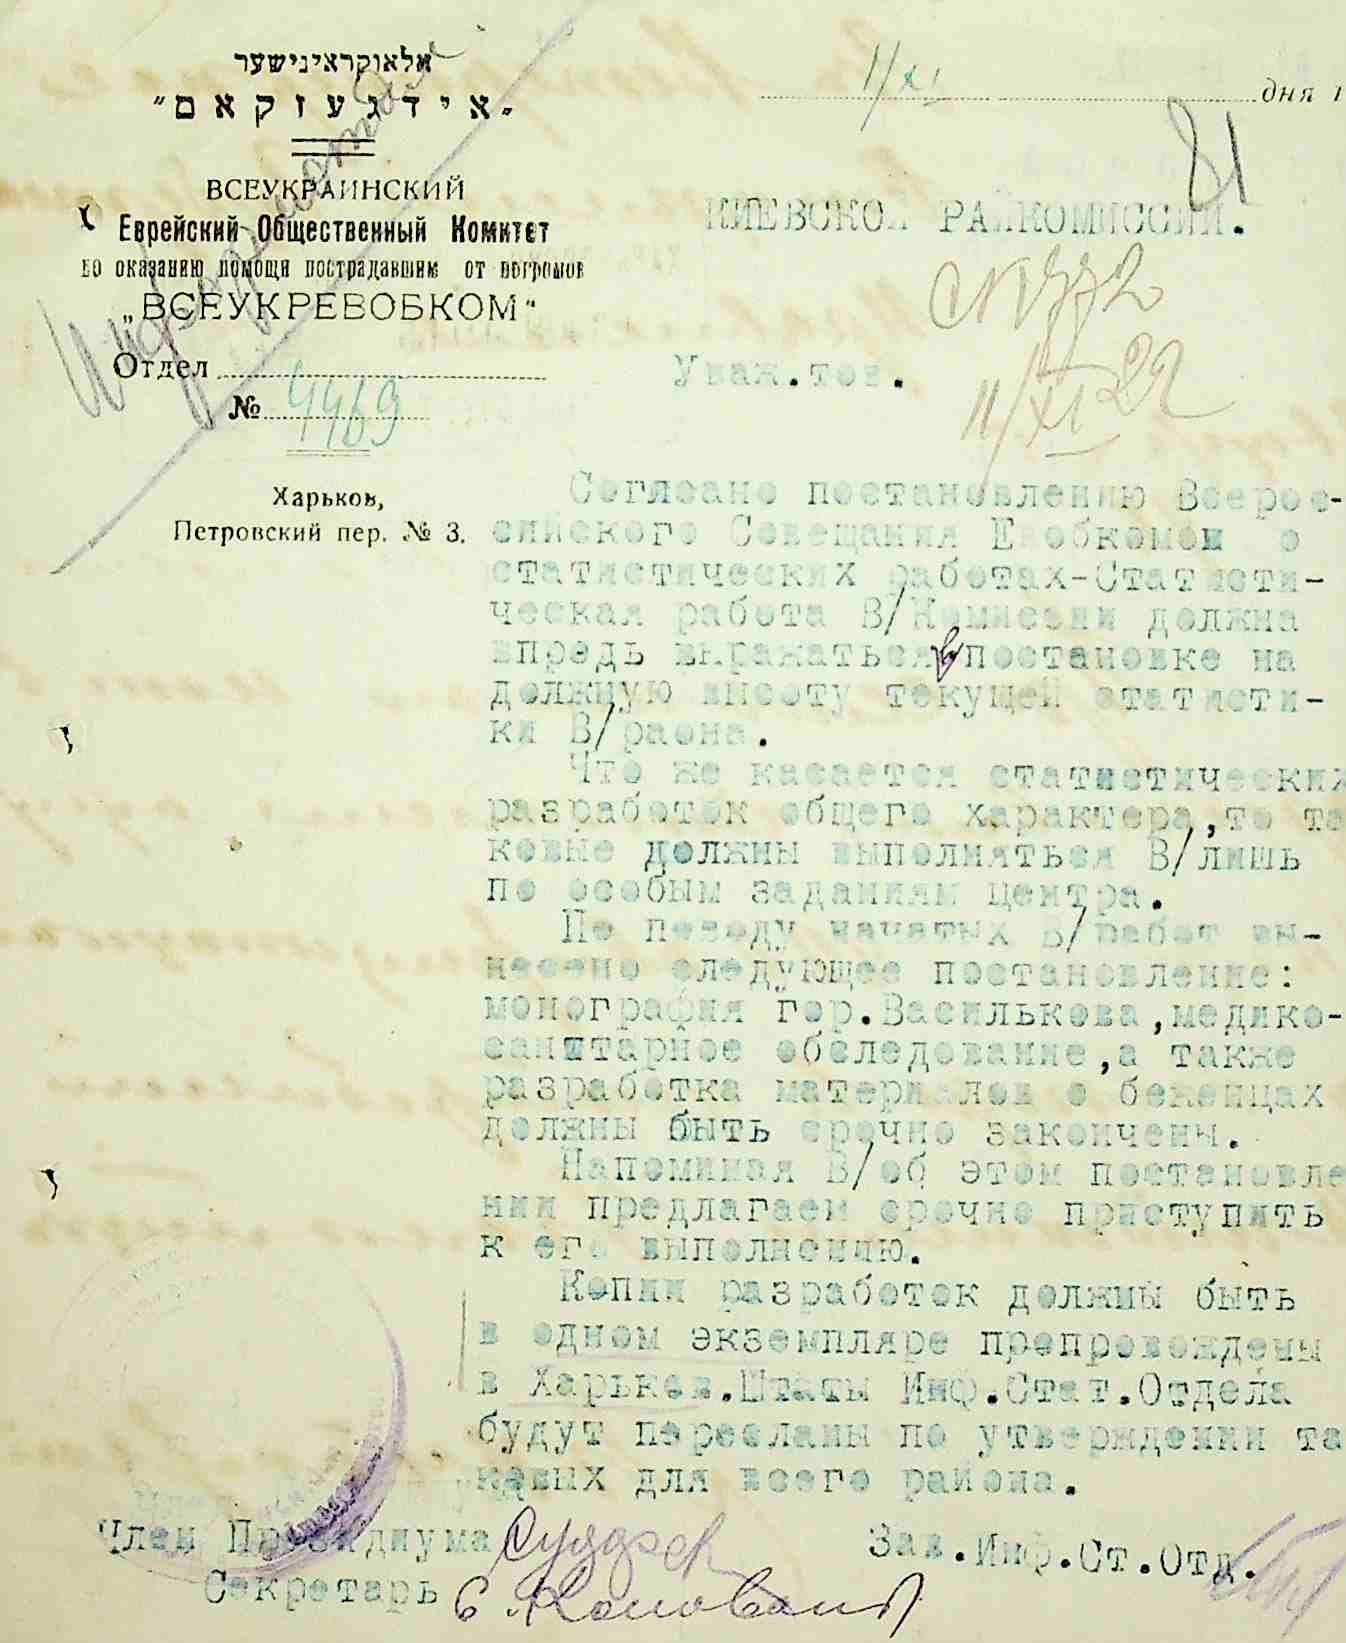 אלאוקראינישער
„אידגעזקאם"
ВСЕУКРАИНСКИЙ
Еврейский Общественный Комитет
по оказанию помощи пострадавшим от погромов
„ВСЕУКРЕВОБКОМ"
Отдел
№ 4469
Харьков,
Петровский пер. № 3.
11/XI дня 1
81
КИЕВСКОЙ РАЙКОМИССИИ.
11/XI 22
Уваж.тов.
Согласно постановлению Всерос-
сийского Совещания Евобкомов о
статистических работах-Статисти-
ческая работа В/Комиссии должна
впредь выражаться в постановке на
должную высоту текущей статисти-
ки В/раона.
Что же касается статистических
разработок общего характера,то та
ковые должны выполняться В/лишь
по особым заданиям центра.
По поводу начатых В/работ вы-
несено следующее постановление:
монография гор.Василькова,медико-
санитарное обследование,а также
разработка материалов о беженцах
должны быть срочно закончены.
Напоминая В/об этом постановле
нии предлагаем срочно приступить
к его выполнению.
Копии разработок должны быть
в одном экземпляре препровождены
в Харьков.Штаты Инф.Стат.Отдела
будут пересланы по утверждении та
ковых для всего района.
Член Президиума
Зав.Инф.Ст.Отд.
Секретарь